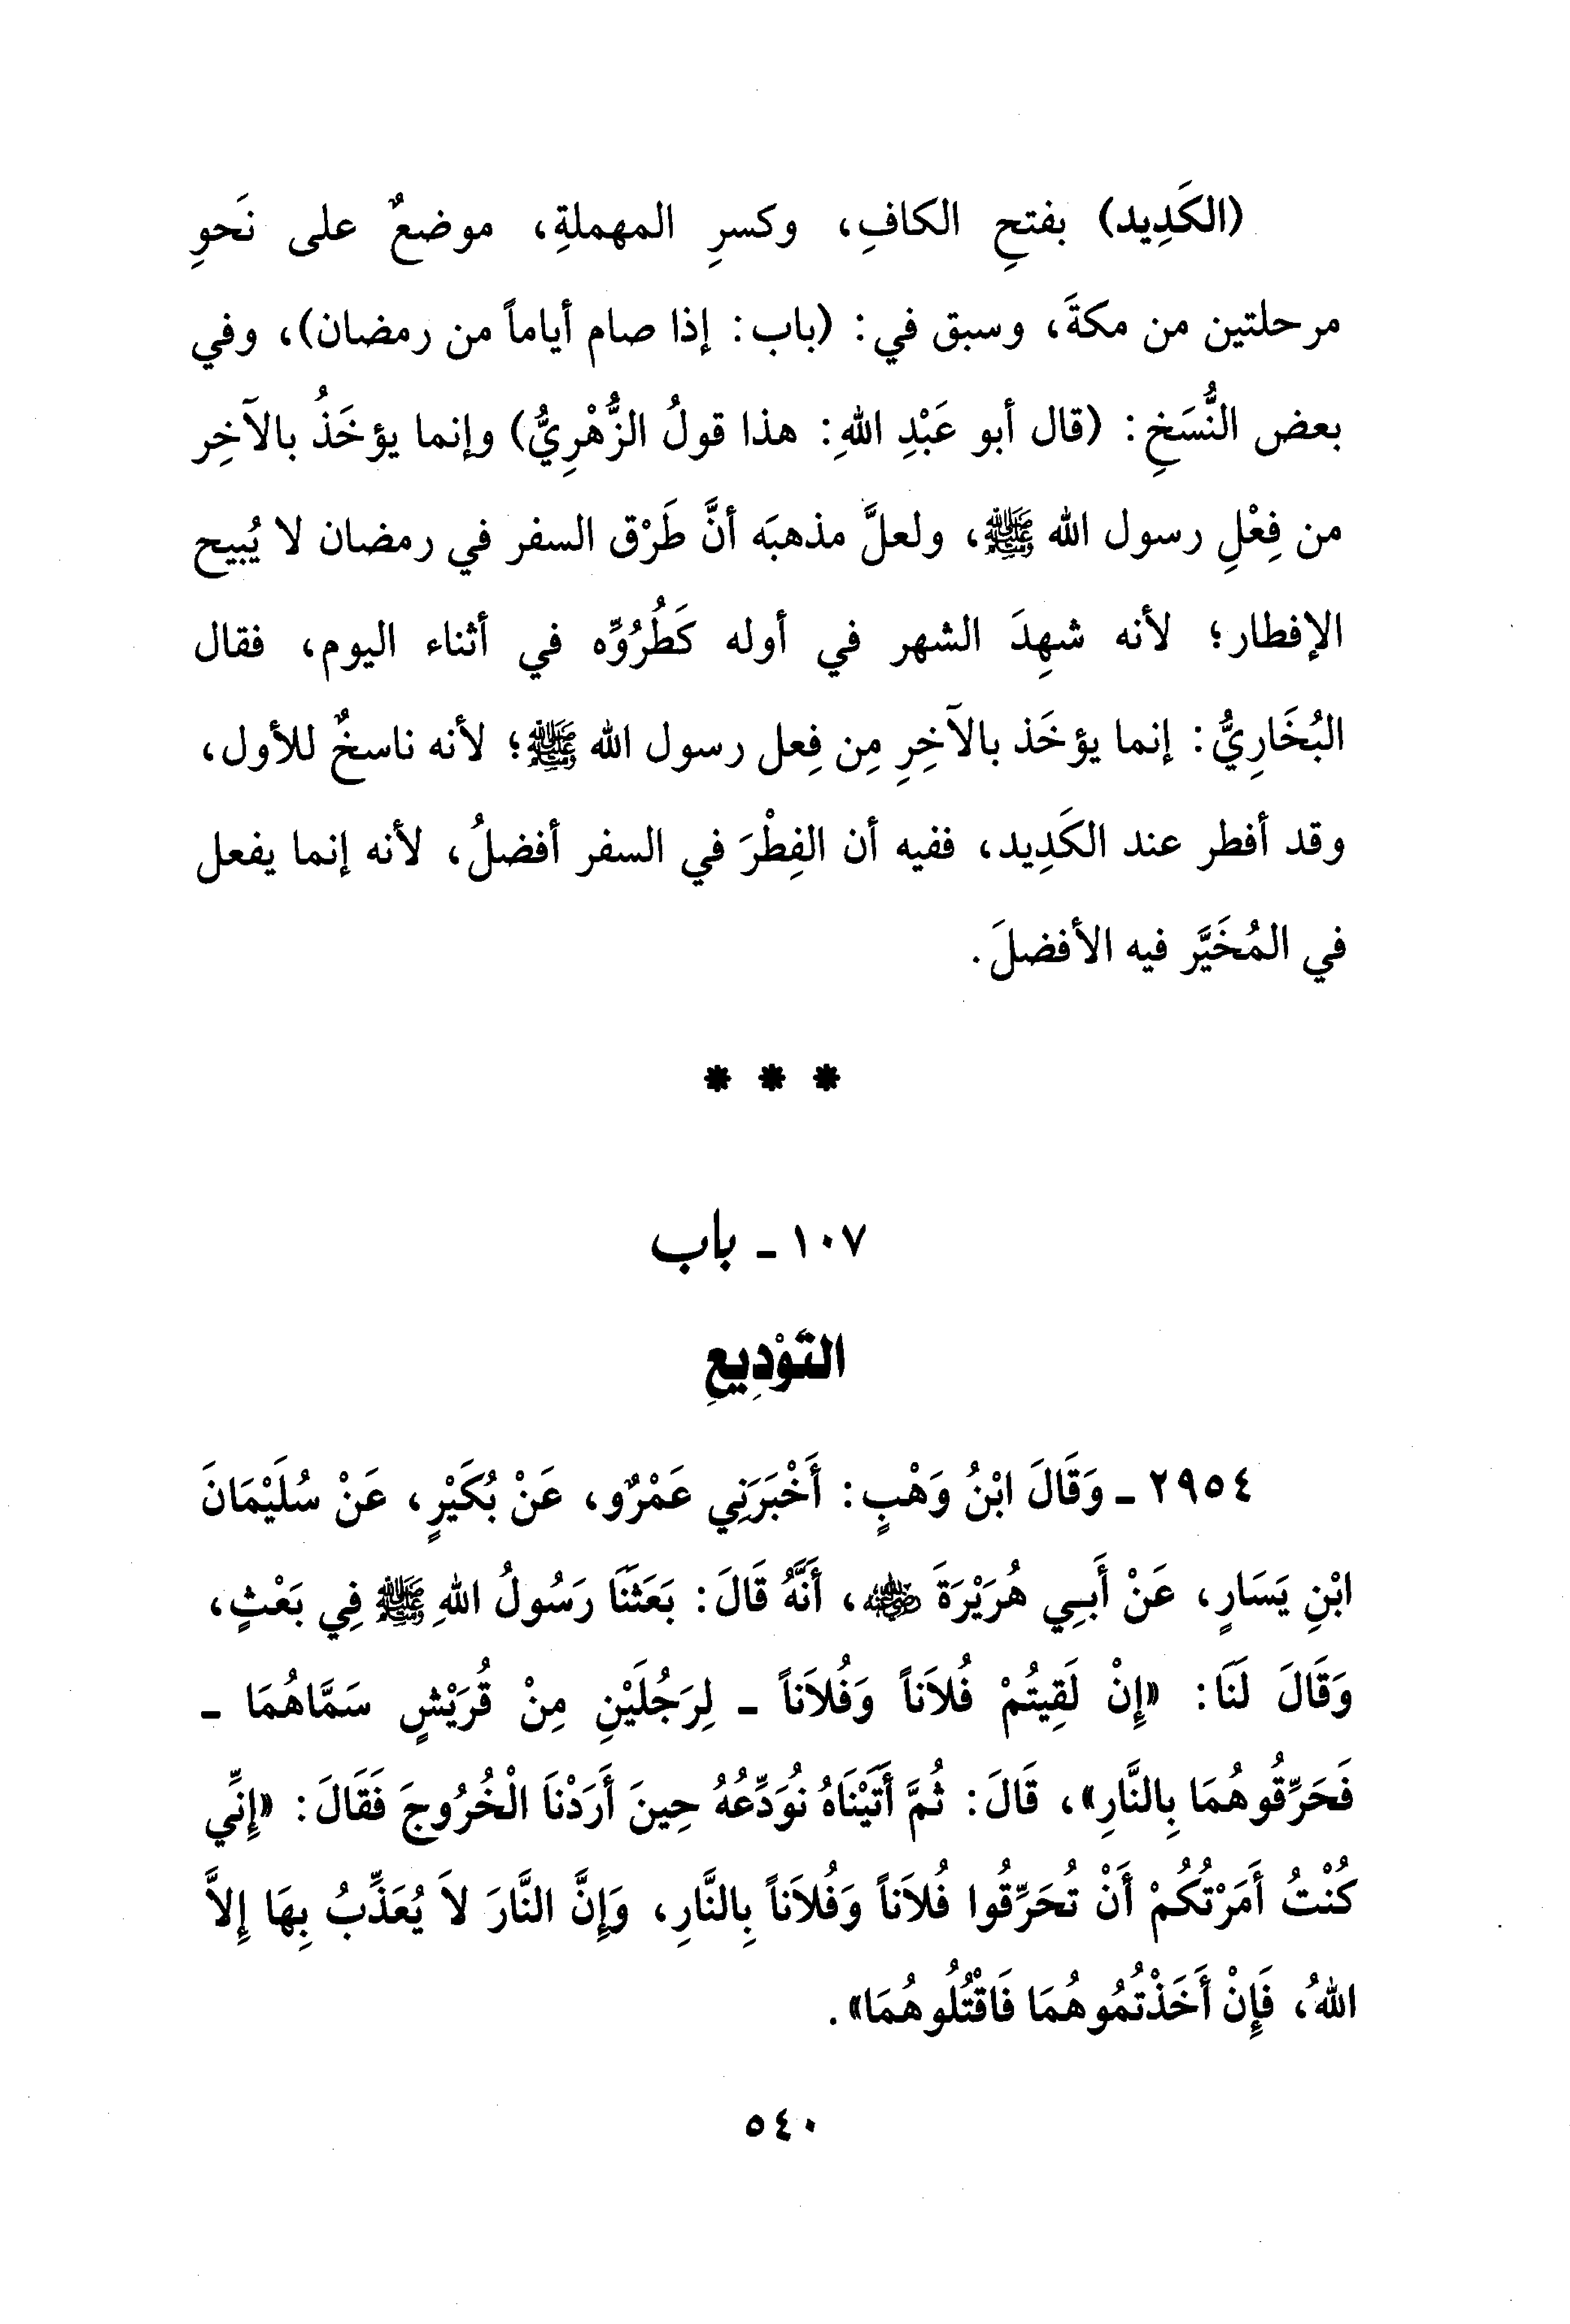 (الكَدِيد) بفتحِ الكافِ، وكسرِ المهملةِ، موضعٌ على نَحوِ
مرحلتين من مكةَ، وسبق في: (باب: إذا صام أياماً من رمضان)، وفي
بعض النُّسَخِ: (قال أبو عَبْدِ اللهِ: هذا قولُ الزُّهْرِيُّ) وإنما يؤخَذُ بالآخِر
من فِعْلِ رسول الله ﷺ، ولعلَّ مذهبَه أنَّ طَرْق السفر في رمضان لا يُبيح
الإفطار؛ لأنه شهِدَ الشهر في أوله كَطُرُوِّه في أثناء اليوم، فقال
البُخَارِيُّ: إنما يؤخَذ بالآخِرِ مِن فِعل رسول الله ﷺ؛ لأنه ناسخٌ للأول،
وقد أفطر عند الكَدِيد، ففيه أن الفِطْرَ في السفر أفضلُ، لأنه إنما يفعل
في المُخَيَّر فيه الأفضلَ.
* * *
١٠٧ - باب
التَّوْدِيعِ
٢٩٥٤ - وَقَالَ ابْنُ وَهْبٍ: أَخْبَرَنِي عَمْرٌو، عَنْ بُكَيْرٍ، عَنْ سُلَيْمَانَ
ابْنِ يَسَارٍ، عَنْ أَبِي هُرَيْرَةَ ﵁، أَنَّهُ قَالَ: بَعَثَنَا رَسُولُ اللهِ ﷺ فِي بَعْثٍ،
وَقَالَ لَنَا: «إِنْ لَقِيتُمْ فُلاَناً وَفُلاَناً - لِرَجُلَيْنِ مِنْ قُرَيْشٍ سَمَّاهُمَا -
فَحَرِّقُوهُمَا بِالنَّارِ»، قَالَ: ثُمَّ أَتَيْنَاهُ نُوَدِّعُهُ حِينَ أَرَدْنَا الْخُرُوجَ فَقَالَ: «إِنِّي
كُنْتُ أَمَرْتُكُمْ أَنْ تُحَرِّقُوا فُلاَناً وَفُلاَناً بِالنَّارِ، وَإِنَّ النَّارَ لاَ يُعَذِّبُ بِهَا إِلاَّ
اللهُ، فَإِنْ أَخَذْتُمُوهُمَا فَاقْتُلُوهُمَا».
٥٤٠